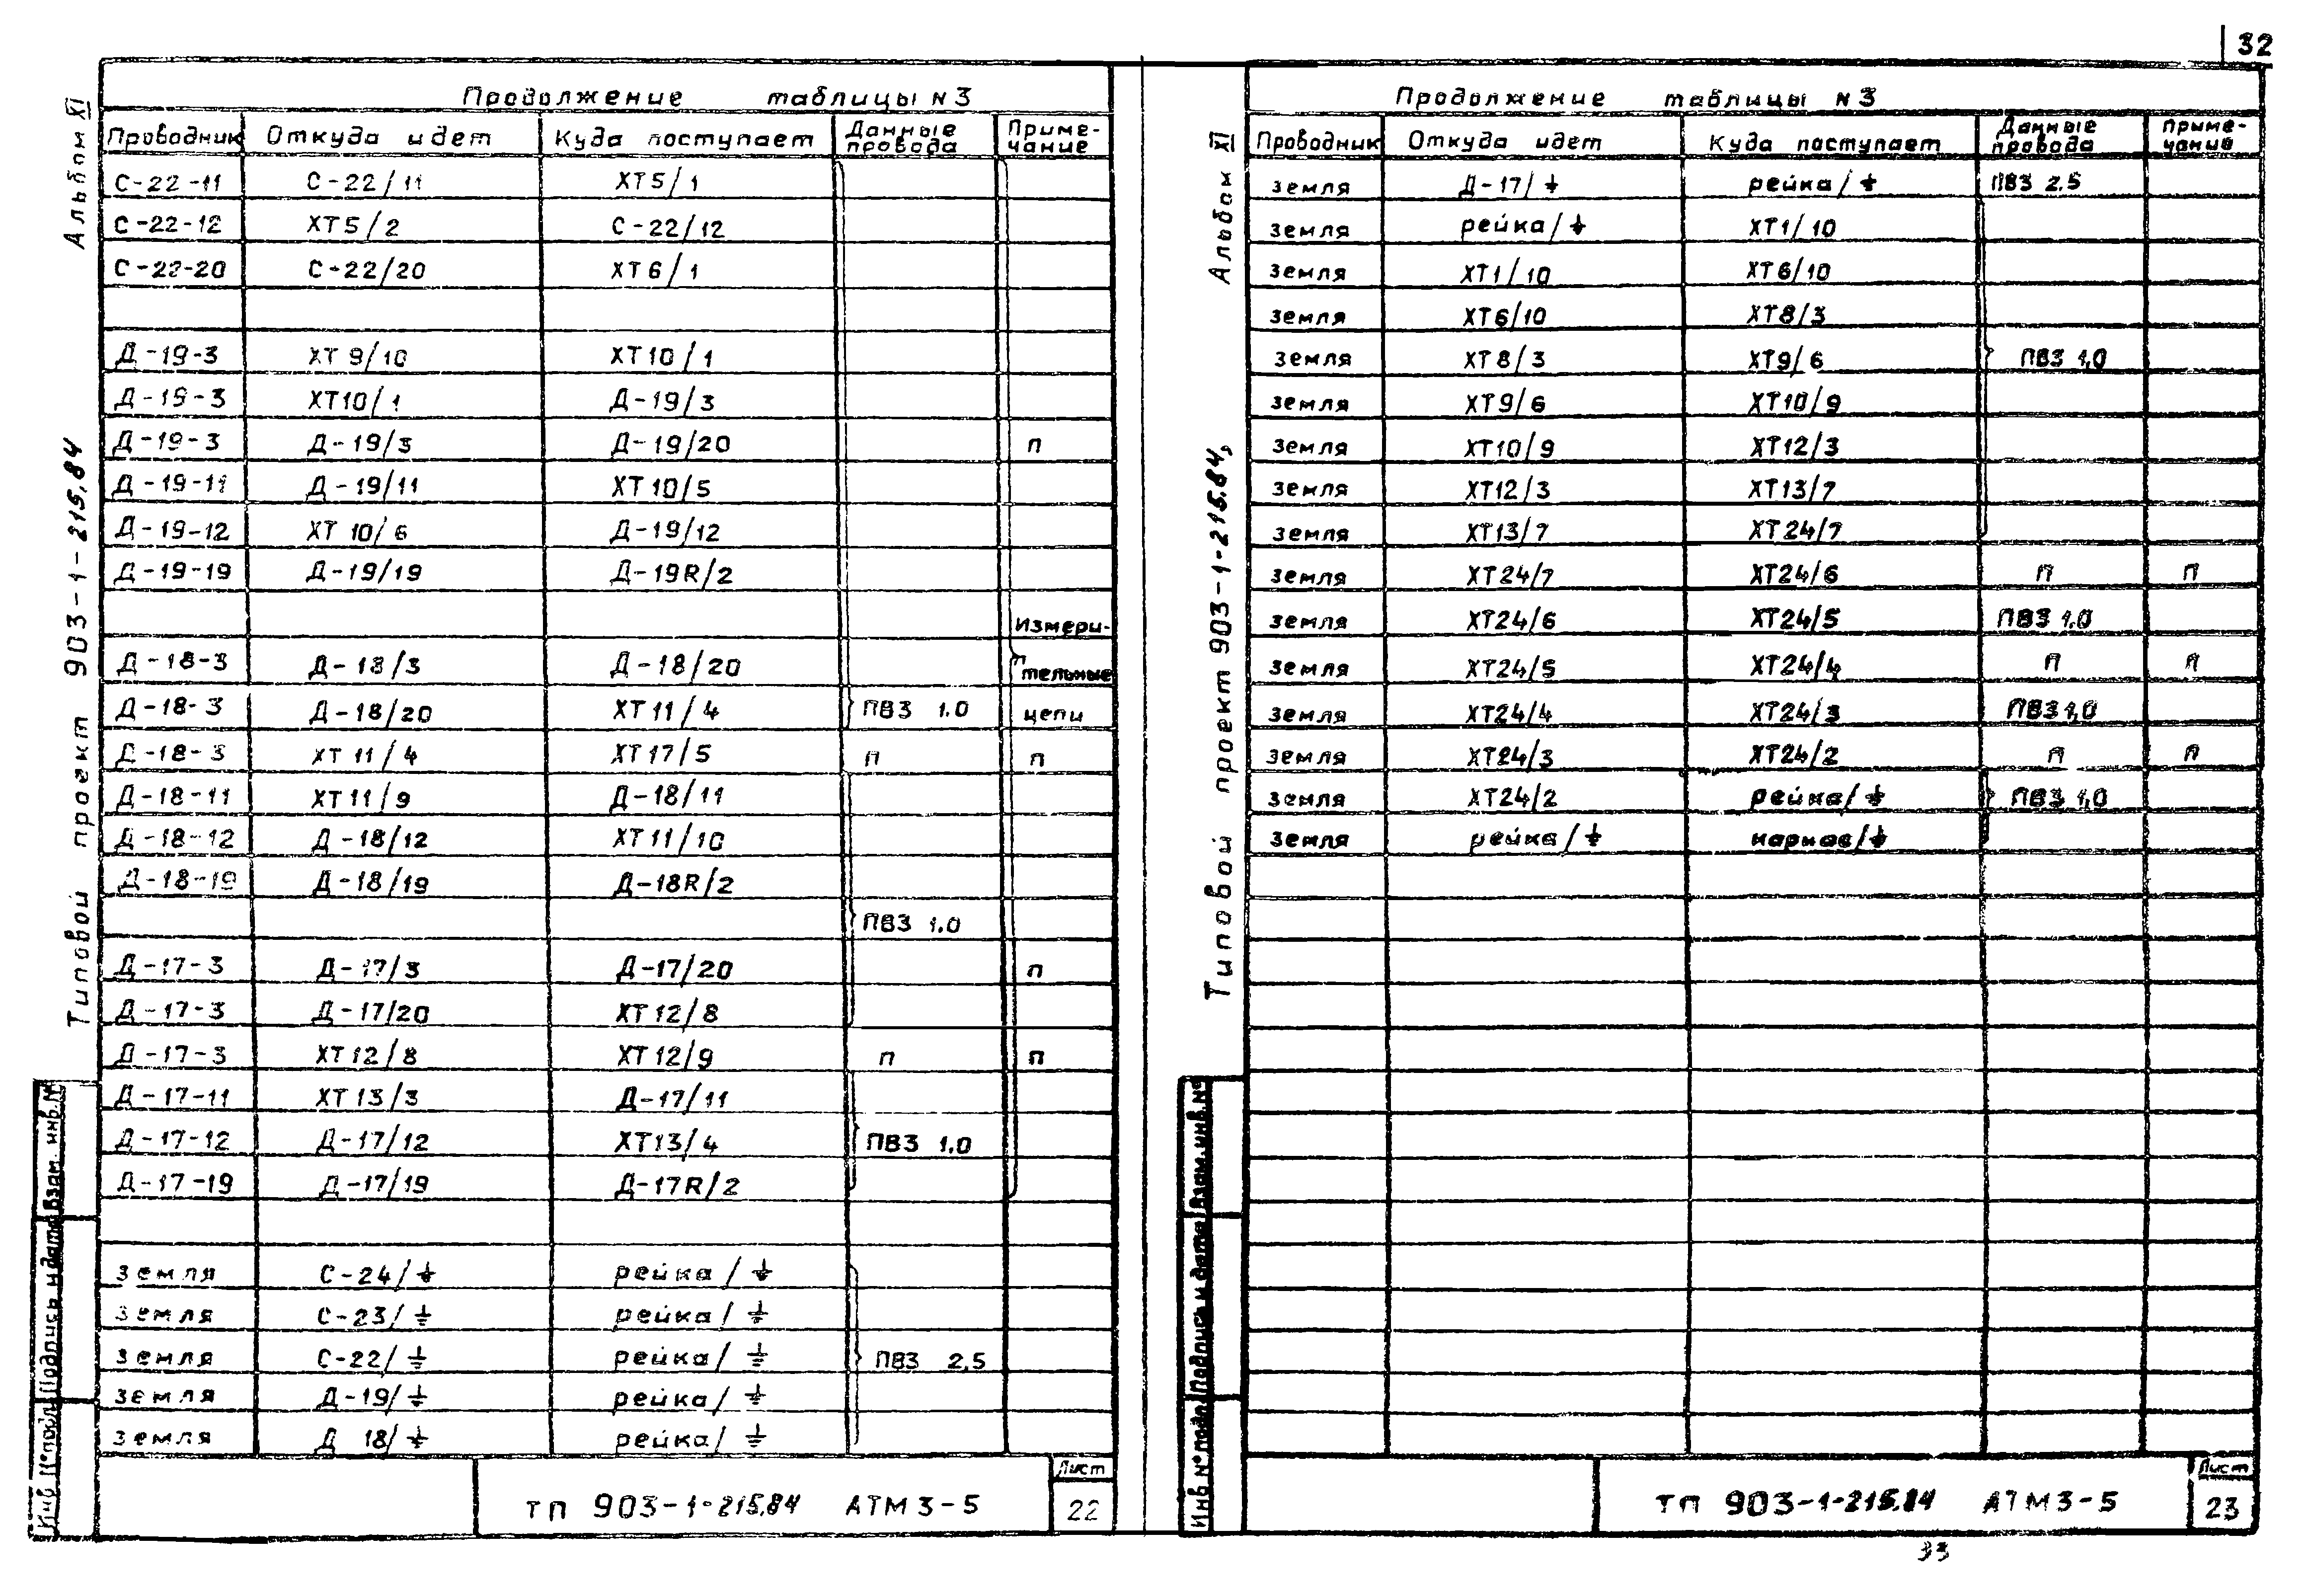 32
Альбом XI
Типовой проект 903-1-215.84
Продолжение таблицы N3
Проводник Откуда идет Куда поступает Данные провода Приме-чание
С-22-11 С-22/11 ХТ5/1
С-22-12 ХТ5/2 С-22/12
С-22-20 С-22/20 ХТ6/1
Д-19-3 ХТ9/10 ХТ10/1
Д-19-3 ХТ10/1 Д-19/3
Д-19-3 Д-19/3 Д-19/20 п
Д-19-11 Д-19/11 ХТ10/5
Д-19-12 ХТ10/6 Д-19/12
Д-19-19 Д-19/19 Д-19R/2
Измери-
Д-18-3 Д-18/3 Д-18/20 п тельные
Д-18-3 Д-18/20 ХТ11/4 ПВ3 1.0 цепи
Д-18-3 ХТ11/4 ХТ17/5 п п
Д-18-11 ХТ11/9 Д-18/11
Д-18-12 Д-18/12 ХТ11/10
Д-18-19 Д-18/19 Д-18R/2
ПВ3 1.0
Д-17-3 Д-17/3 Д-17/20 п
Д-17-3 Д-17/20 ХТ12/8
Д-17-3 ХТ12/8 ХТ12/9 п п
Д-17-11 ХТ13/3 Д-17/11
Д-17-12 Д-17/12 ХТ13/4 ПВ3 1.0
Д-17-19 Д-17/19 Д-17R/2
земля С-24/⏚ рейка/⏚
земля С-23/⏚ рейка/⏚
земля С-22/⏚ рейка/⏚ ПВ3 2.5
земля Д-19/⏚ рейка/⏚
земля Д 18/⏚ рейка/⏚
Инв № подл Подпись и дата Взам. инв. №
ТП 903-1-215.84 АТМ3-5
Лист
22
Альбом XI
Типовой проект 903-1-215.84,
Продолжение таблицы N3
Проводник Откуда идет Куда поступает Данные провода Приме-чание
земля Д-17/⏚ рейка/⏚ ПВ3 2.5
земля рейка/⏚ ХТ1/10
земля ХТ1/10 ХТ6/10
земля ХТ6/10 ХТ8/3
земля ХТ8/3 ХТ9/6 ПВ3 1,0
земля ХТ9/6 ХТ10/9
земля ХТ10/9 ХТ12/3
земля ХТ12/3 ХТ13/7
земля ХТ13/7 ХТ24/7
земля ХТ24/7 ХТ24/6 п п
земля ХТ24/6 ХТ24/5 ПВ3 1.0
земля ХТ24/5 ХТ24/4 п п
земля ХТ24/4 ХТ24/3 ПВ3 1,0
земля ХТ24/3 ХТ24/2 п п
земля ХТ24/2 рейка/⏚ ПВ3 1,0
земля рейка/⏚ каркас/⏚
Инв № подл Подпись и дата Взам. инв. №
ТП 903-1-215.84 АТМ3-5
Лист
23
33